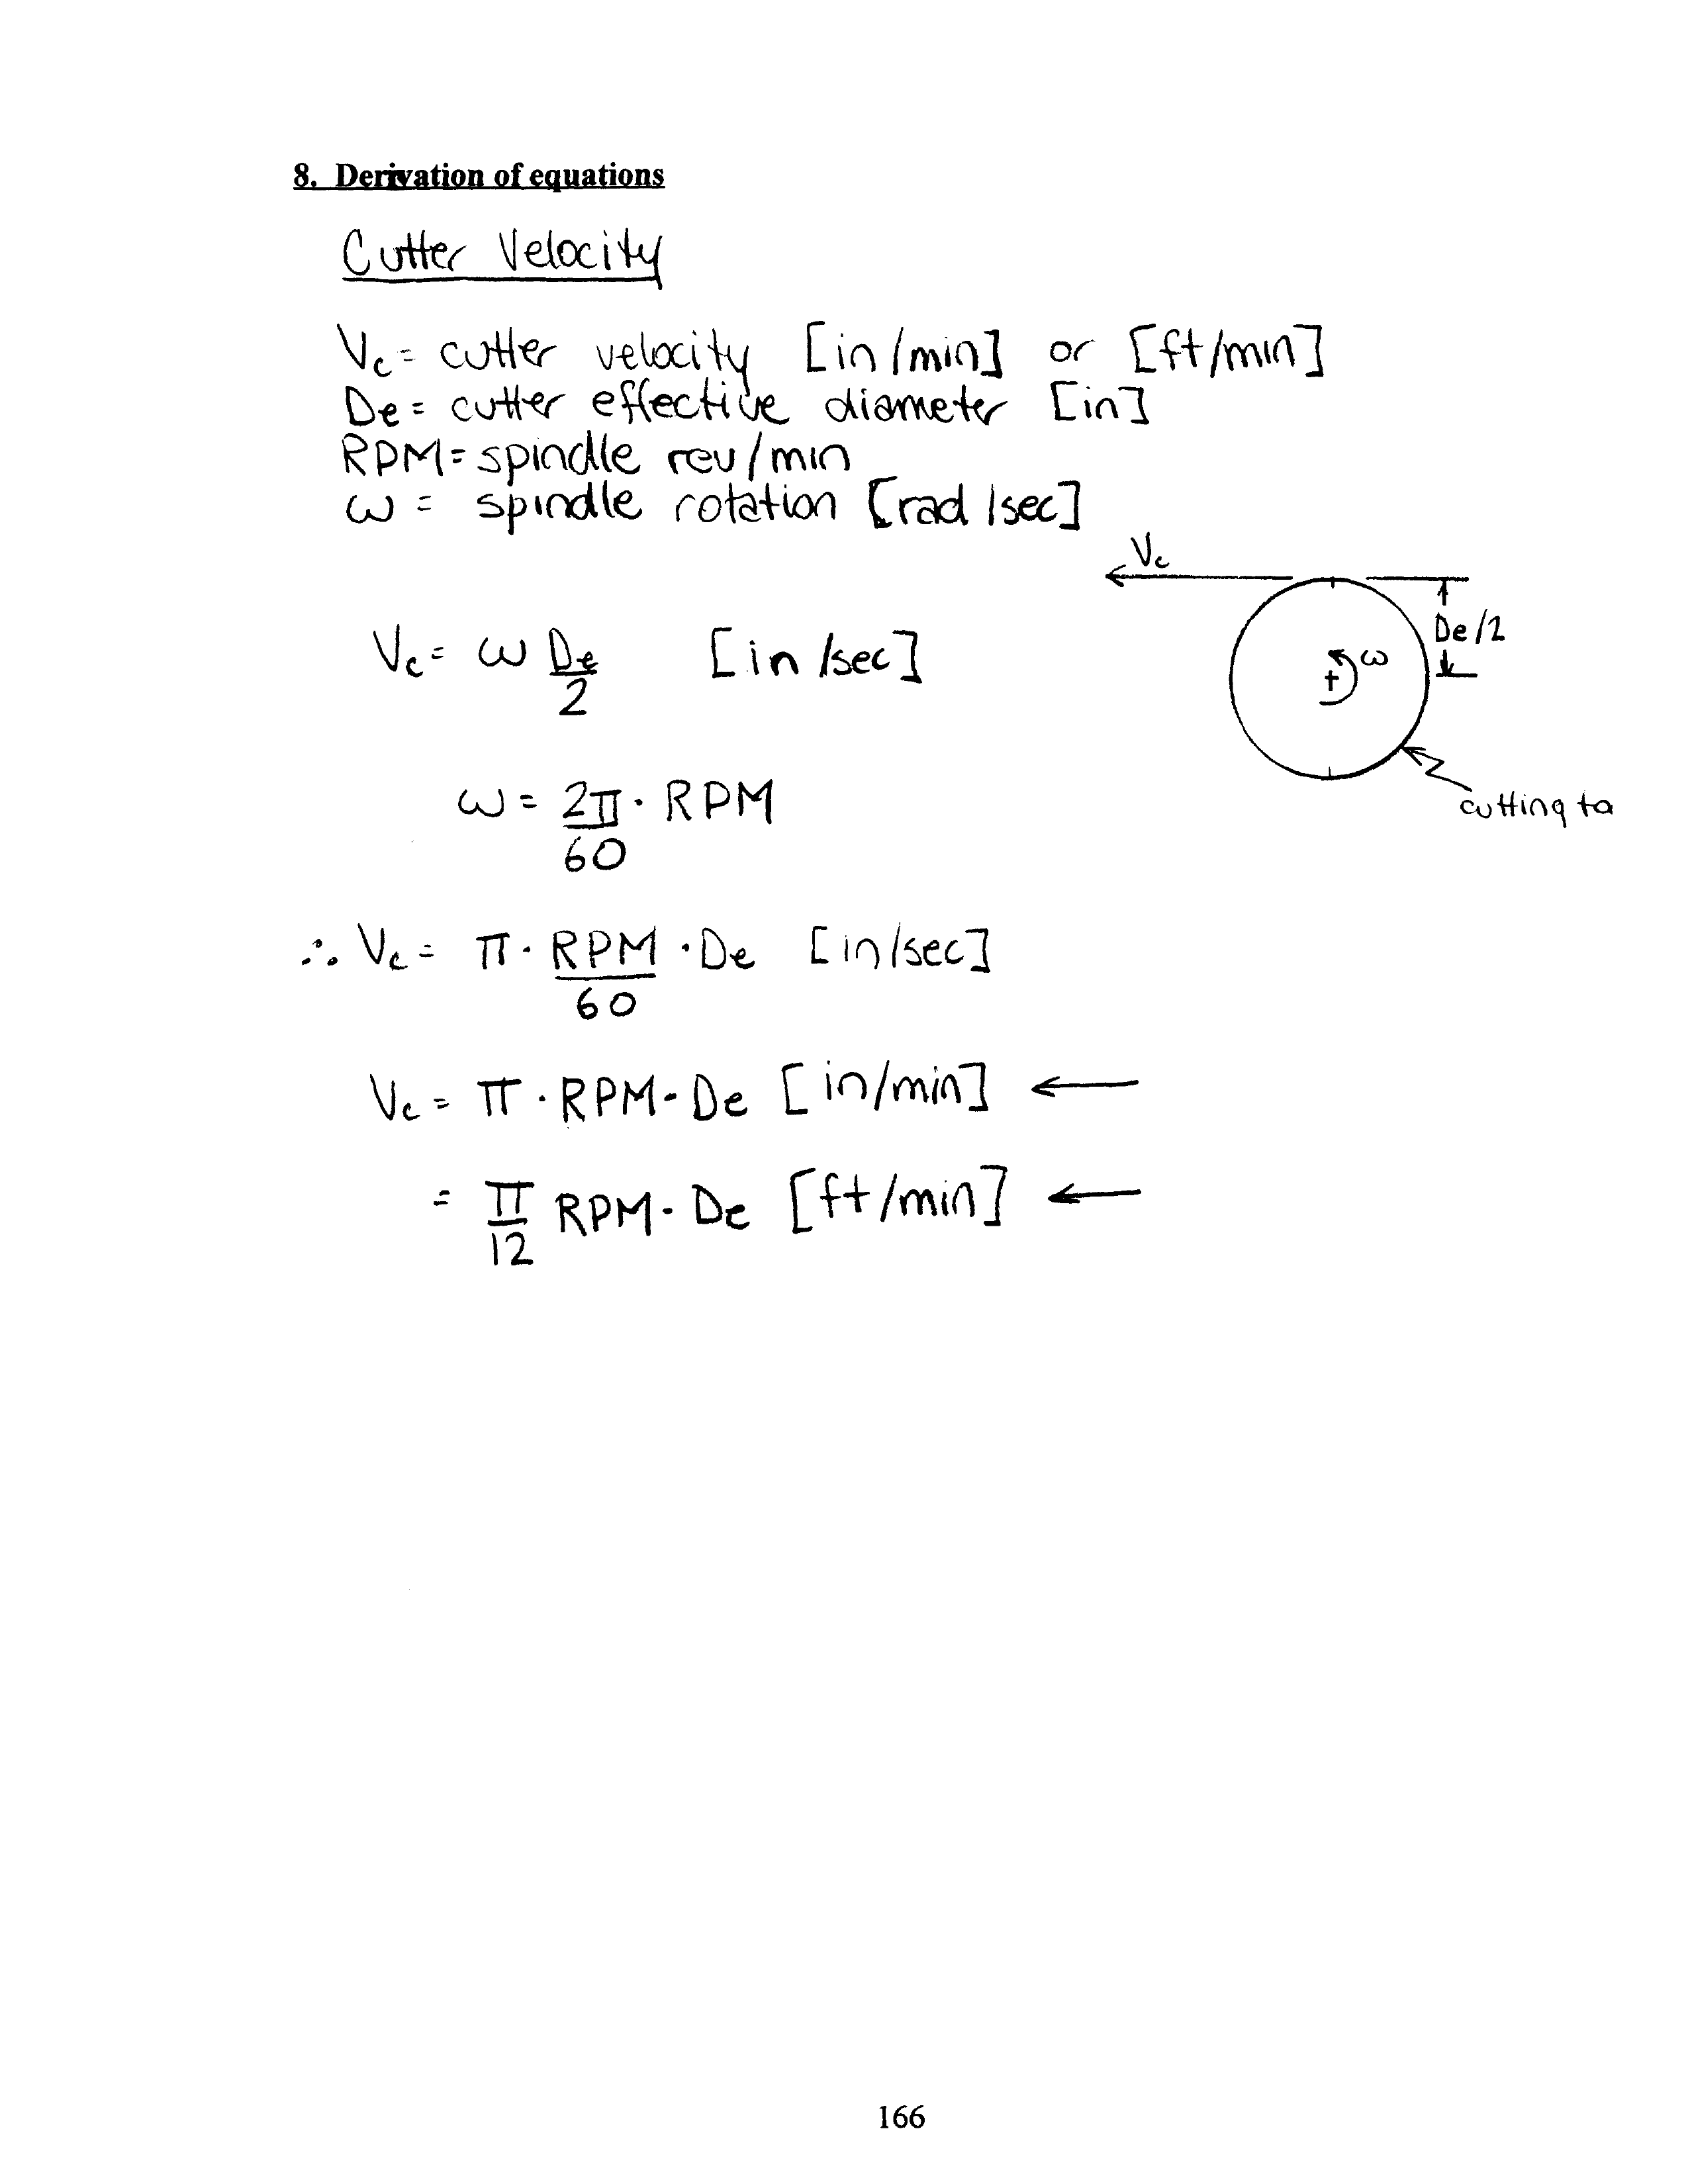 8. Derivation of equations
Cutter Velocity
Vc = cutter velocity [in/min] or [ft/min]
De = cutter effective diameter [in]
RPM = spindle rev/min
ω = spindle rotation [rad/sec]
Vc
De/2
ω
cutting to
Vc = ω De/2 [in/sec]
ω = 2π/60 · RPM
∴ Vc = π · RPM/60 · De [in/sec]
Vc = π · RPM · De [in/min] ←
= π/12 RPM · De [ft/min] ←
166